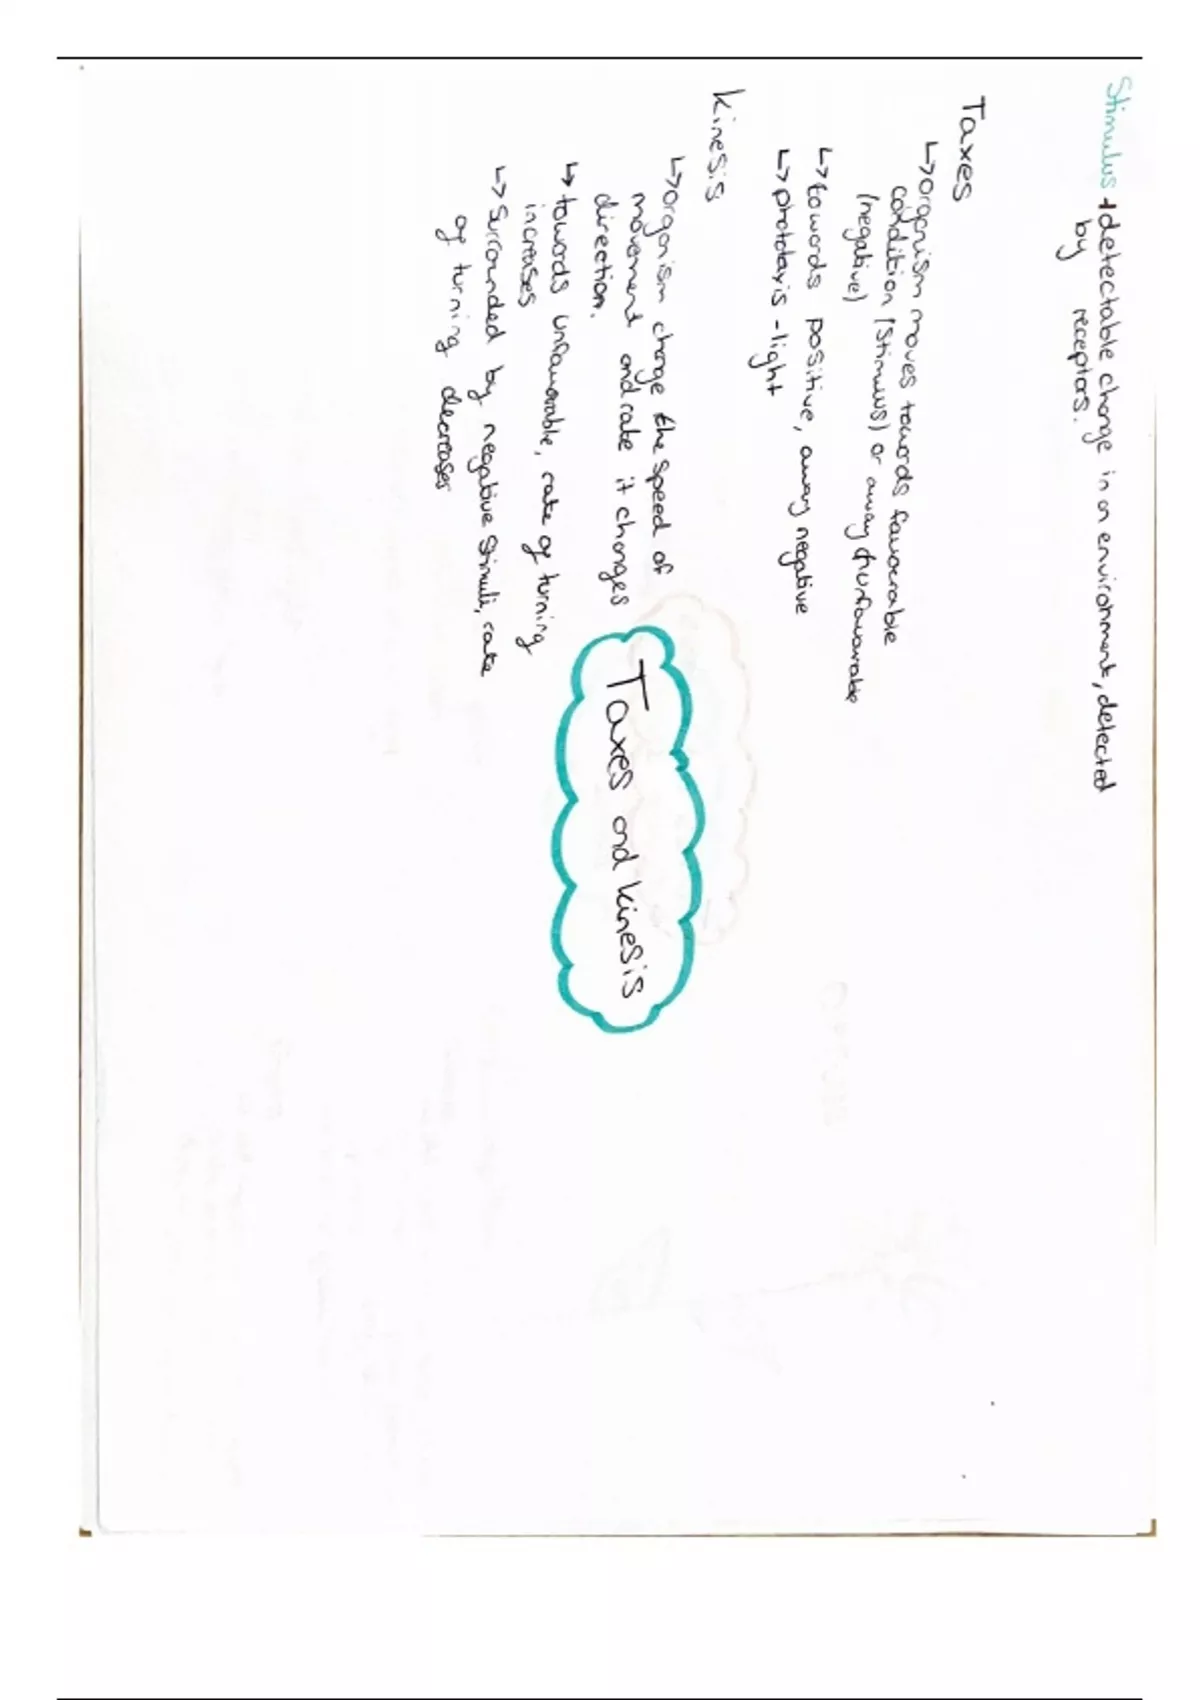 Stimulus → detectable change in an environment, detected
by receptors.
Taxes
↳ organism moves towards favourable
condition (stimulus) or away unfavourable
(negative)
↳ towards positive, away negative
↳ phototaxis - light
Kinesis
↳ organism change the speed of
movement and rate it changes
direction.
↳ towards unfavourable, rate of turning
increases
↳ surrounded by negative stimuli, rate
of turning decreases
Taxes and kinesis